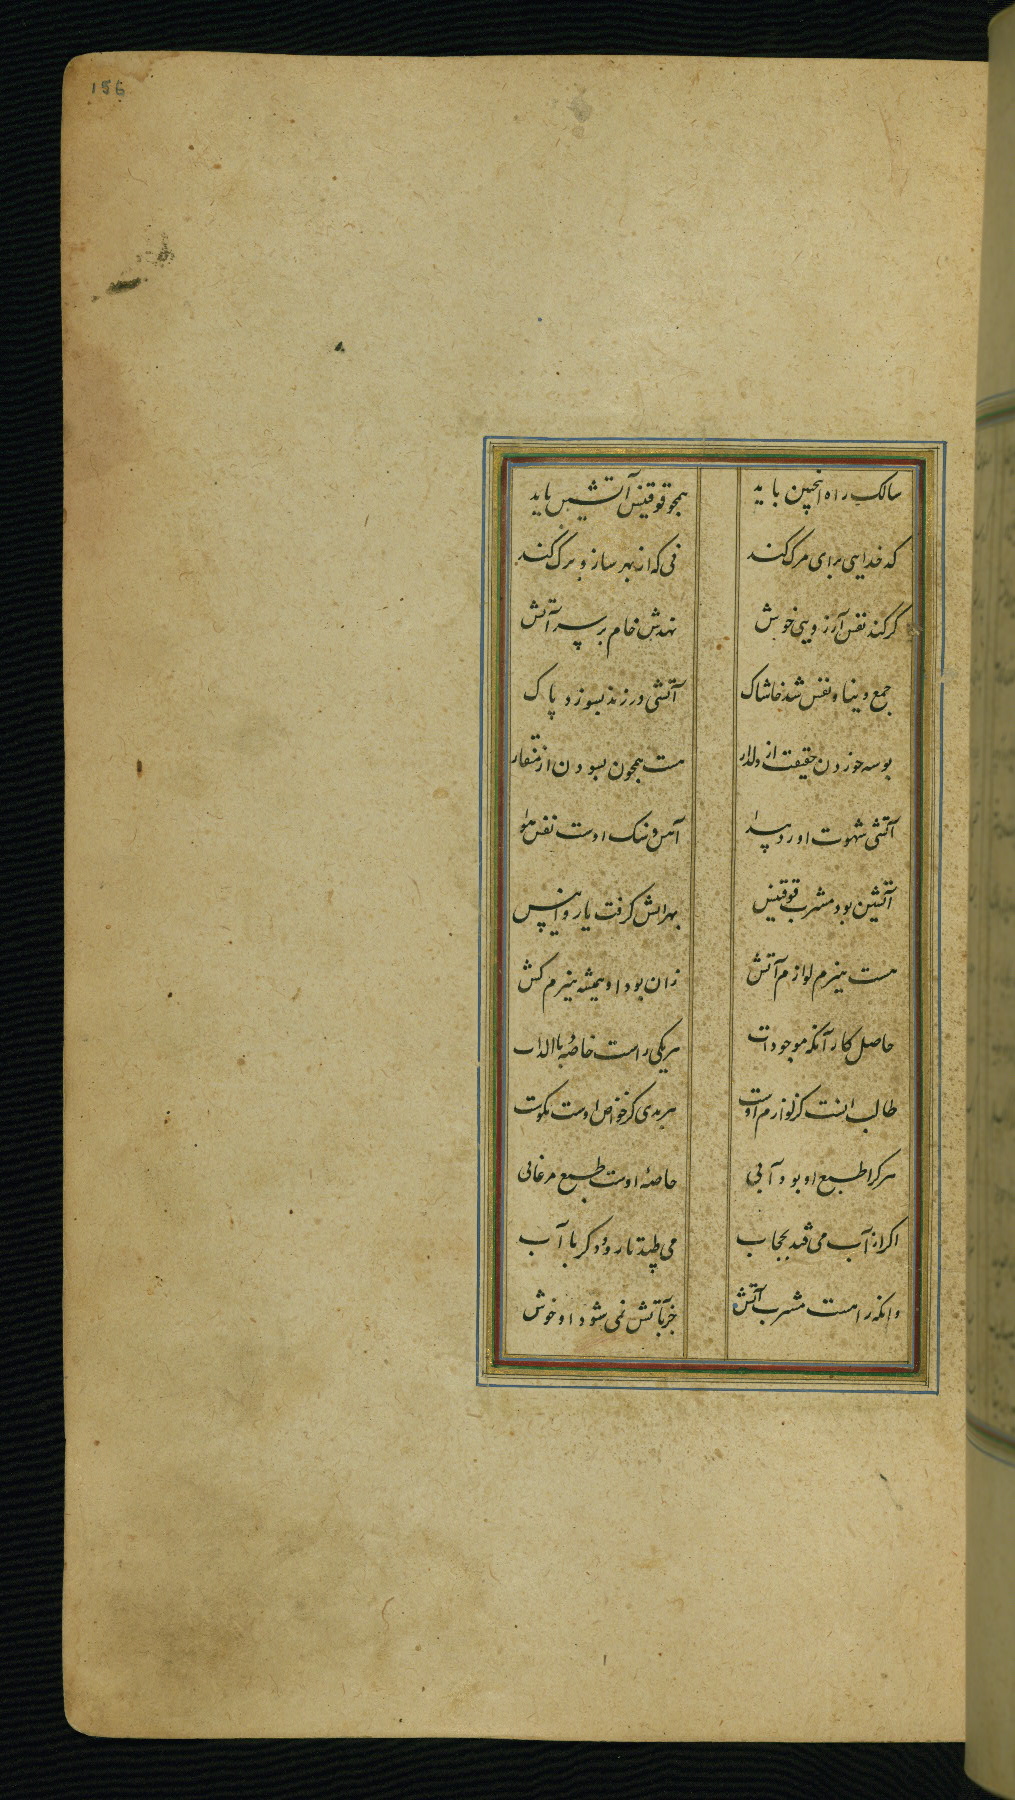 156
سالک راه اینچنین باید همچو قوقنس آتشین باید
که خدایی برای مرک کند نی که از بهر ساز و برک کند
کر کند نفس آرزویی خوش نهدش خام بر سر آتش
جمع دنیا و نفس شد خاشاک آتشی در زند بسوزد پاک
بوسه خوردن حقیقت از دلدار هست همچون بسودن از منقار
آتشی شهوت اورد پیدا آهن و سنک اوست نفس هوا
آتشین بود مشرب قوقنس کرفت یار و انیس
هست هیزم لوازم آتش زان بود او همیشه هیزم کش
حاصل کار آنکه موجودات هریکی راست خاصهٔ بالذات
طالب انست کز لوازم اوست کز خواص اوست نکوست
هرکرا طبع او بود آبی خاصهٔ اوست طبع مرغابی
اکر از آب می فتد بحجاب می طپد تا رود دکر با آب
وانکه را هست مشرب آتش جز بآتش نمی شود او خوش